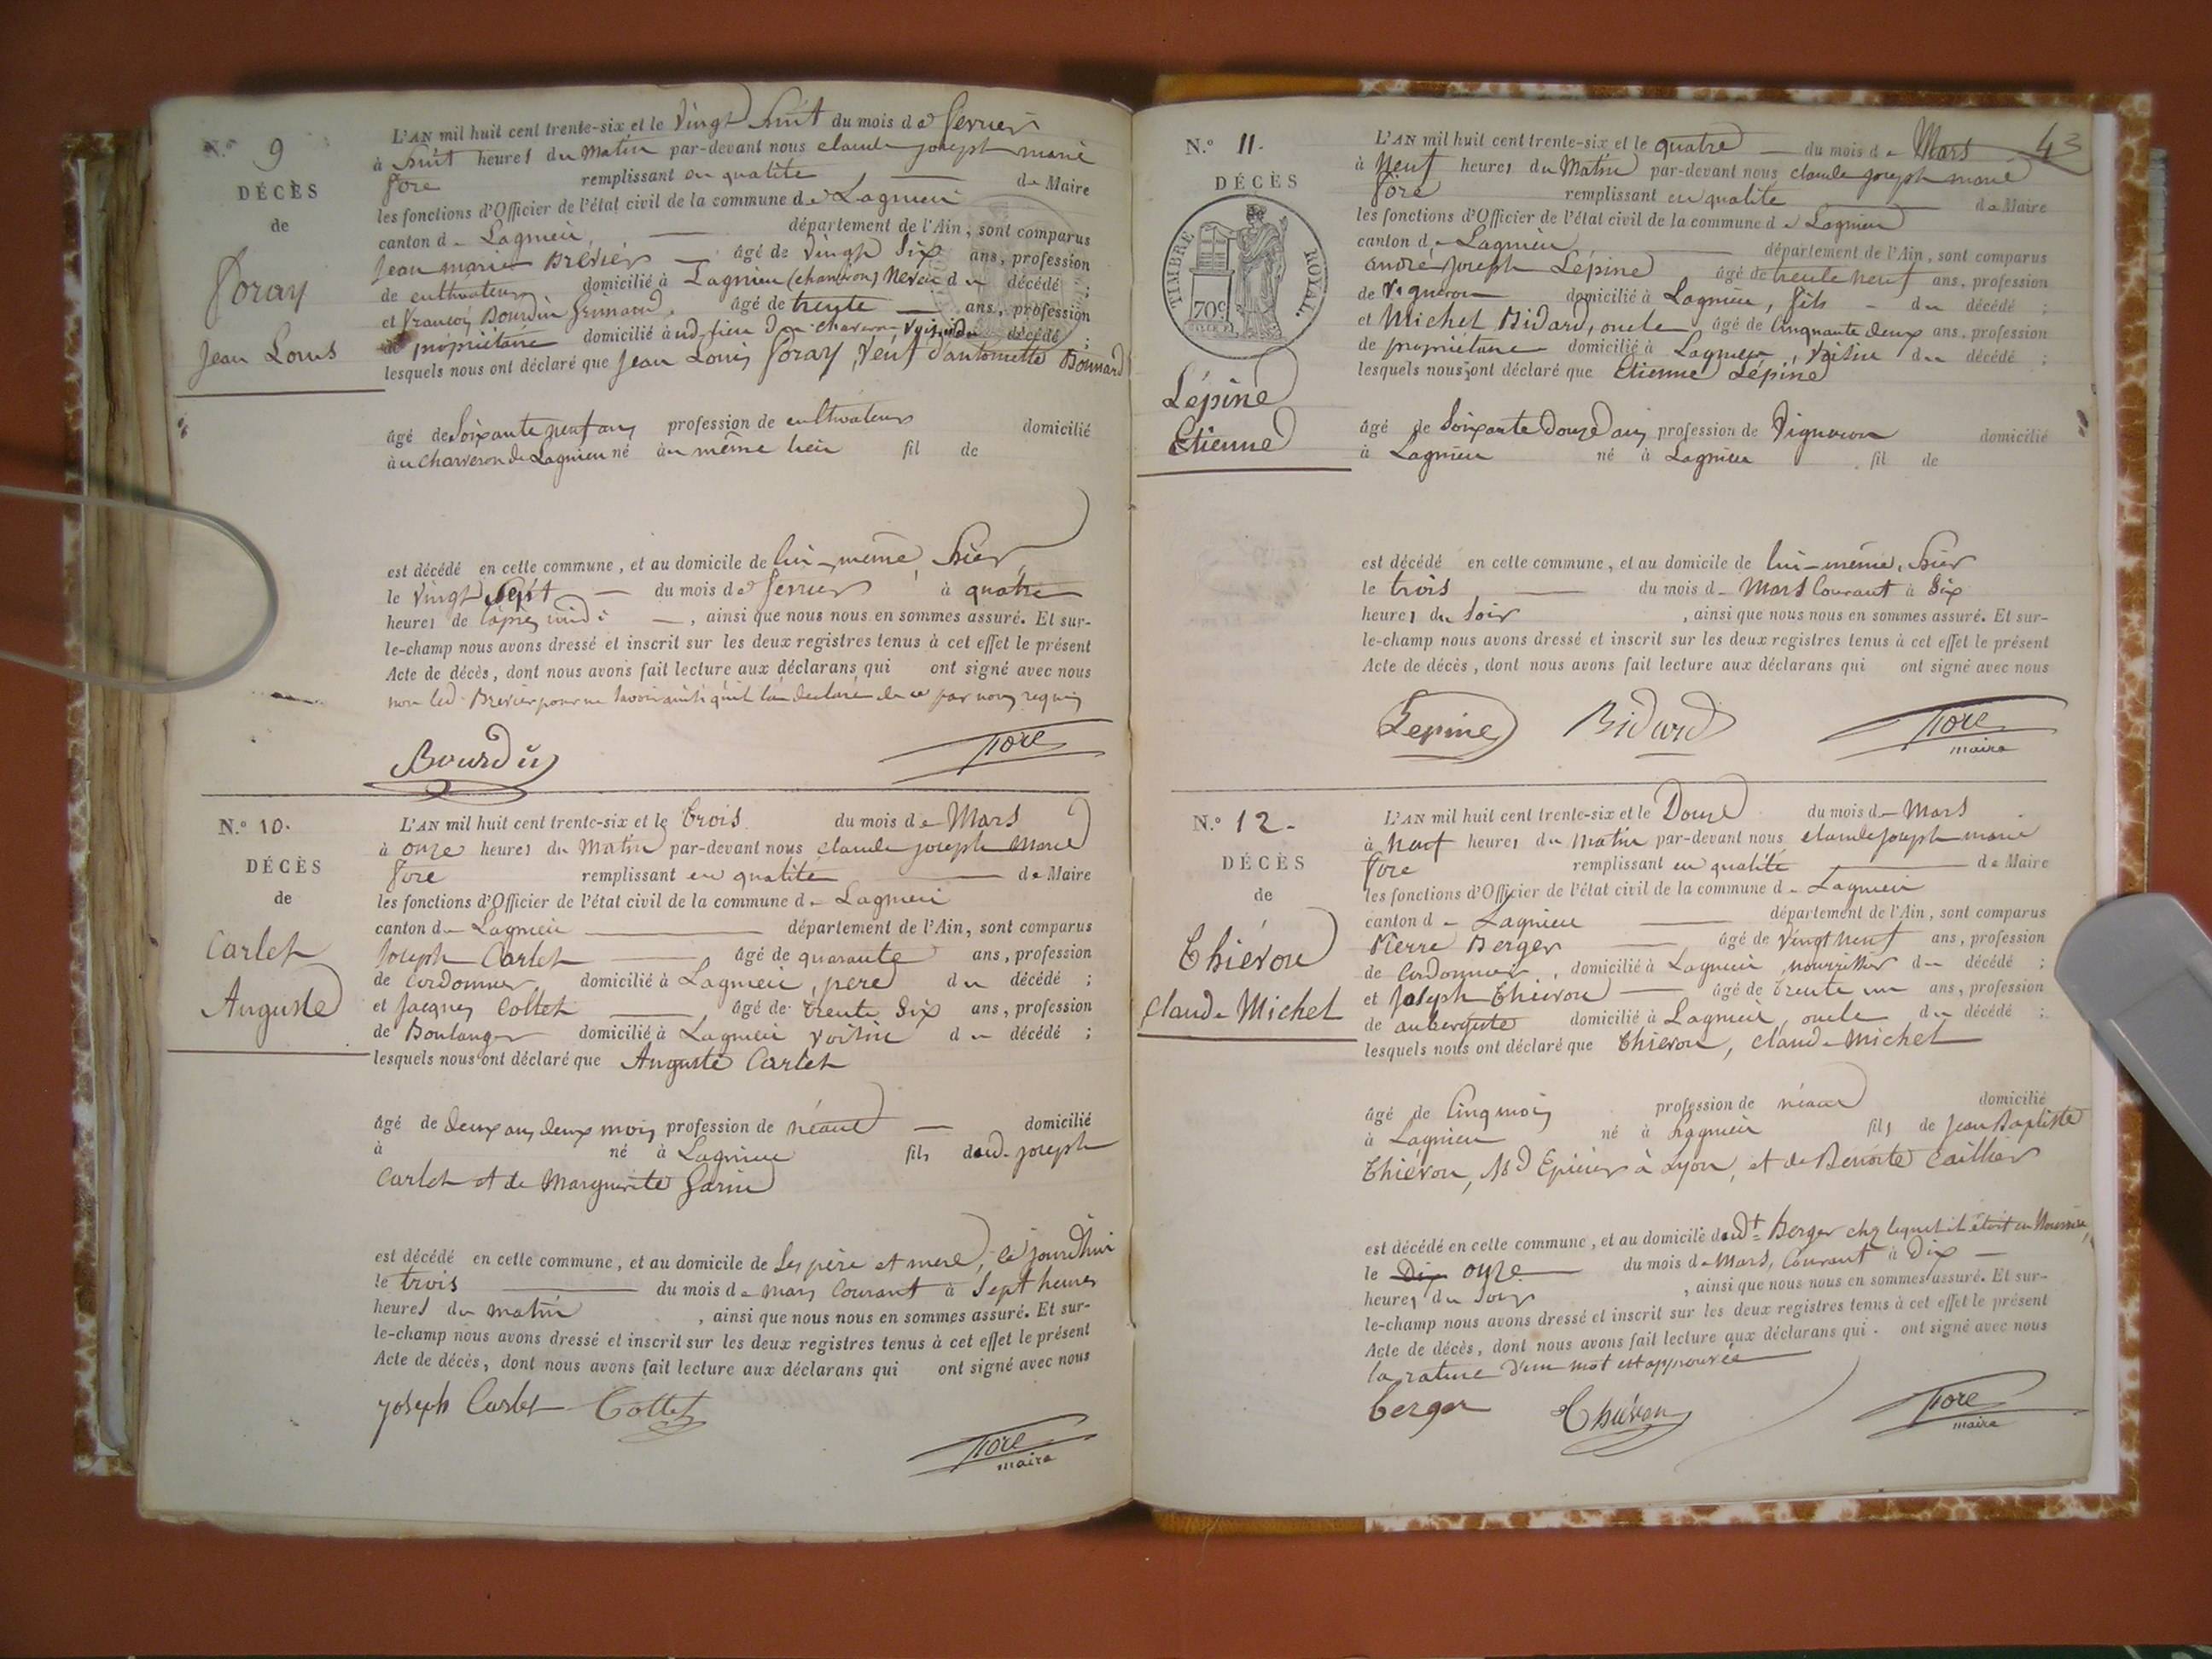 N.º 9
DÉCÈS
de
Foray
Jean Louis
L'AN mil huit cent trente-six et le vingt huit du mois de fevrier
à huit heures du matin par-devant nous claude joseph marie
fore remplissant en qualité de Maire
les fonctions d'Officier de l'état civil de la commune de Lagnieu
canton de Lagnieu, département de l'Ain, sont comparus
Jean marie Brevier âgé de vingt six ans, profession
de cultivateur domicilié à Lagnieu (charveron) neveu du décédé ;
et françois Bourdin âgé de trente ans, profession
de propriétaire domicilié aud. lieu de charveron voisin du décédé ;
lesquels nous ont déclaré que Jean Louis Foray, veuf d'antoinette Bonnard
âgé de soixante neuf ans profession de cultivateur domicilié
à au Charveron de Lagnieu né au même lieu fil de
est décédé en cette commune, et au domicile de lui-même, hier
le vingt sept du mois de fevrier à quatre
heures de l'après midi, ainsi que nous nous en sommes assuré. Et sur-
le-champ nous avons dressé et inscrit sur les deux registres tenus à cet effet le présent
Acte de décès, dont nous avons fait lecture aux déclarans qui ont signé avec nous
non led. Brevier pour ne savoir ainsi qu'il l'a déclaré de ce par nous requis
Bourdin fore
N.º 10.
DÉCÈS
de
Carlet
Auguste
L'AN mil huit cent trente-six et le trois du mois de Mars
à onze heures du matin par-devant nous claude joseph marie
fore remplissant en qualité de Maire
les fonctions d'Officier de l'état civil de la commune de Lagnieu
canton de Lagnieu département de l'Ain, sont comparus
Joseph Carlet âgé de quarante ans, profession
de Cordonnier domicilié à Lagnieu, pere du décédé ;
et Jacques Collet âgé de trente six ans, profession
de Boulanger domicilié à Lagnieu voisin du décédé ;
lesquels nous ont déclaré que Auguste Carlet
âgé de deux ans deux mois profession de néant domicilié
à né à Lagnieu fils dud. joseph
Carlet et de Marguerite Garin
est décédé en cette commune, et au domicile de ses père et mere, ce jourd'hui
le trois du mois de mars courant à sept heures
heures du matin, ainsi que nous nous en sommes assuré. Et sur-
le-champ nous avons dressé et inscrit sur les deux registres tenus à cet effet le présent
Acte de décès, dont nous avons fait lecture aux déclarans qui ont signé avec nous
joseph Carlet Collet
fore
maire
43
N.º 11.
DÉCÈS
TIMBRE ROYAL.
70c
Lépine
Etienne
L'AN mil huit cent trente-six et le quatre du mois de Mars
à neuf heures du Matin par-devant nous claude joseph marie
fore remplissant en qualité de Maire
les fonctions d'Officier de l'état civil de la commune de Lagnieu
canton de Lagnieu département de l'Ain, sont comparus
andré joseph Lépine âgé de trente neuf ans, profession
de Vigneron domicilié à Lagnieu, fils du décédé ;
et Michel Bidard, oncle âgé de Cinquante deux ans, profession
de propriétaire domicilié à Lagnieu, voisin du décédé ;
lesquels nous ont déclaré que Etienne Lépine
âgé de soixante douze ans profession de Vigneron domicilié
à Lagnieu né à Lagnieu fil de
est décédé en cette commune, et au domicile de lui-même, hier
le trois du mois de Mars Courant à six
heures du soir, ainsi que nous nous en sommes assuré. Et sur-
le-champ nous avons dressé et inscrit sur les deux registres tenus à cet effet le présent
Acte de décès, dont nous avons fait lecture aux déclarans qui ont signé avec nous
Lepine Bidard fore
maire
N.º 12.
DÉCÈS
de
Thiévon
Claude Michel
L'AN mil huit cent trente-six et le Douze du mois de Mars
à neuf heures du matin par-devant nous claude joseph marie
fore remplissant en qualité de Maire
les fonctions d'Officier de l'état civil de la commune de Lagnieu
canton de Lagnieu département de l'Ain, sont comparus
Pierre Berger âgé de vingt neuf ans, profession
de Cordonnier, domicilié à Lagnieu, nourrissier du décédé ;
et Joseph Thievon âgé de trente un ans, profession
de aubergiste domicilié à Lagnieu, oncle du décédé ;
lesquels nous ont déclaré que Thievon, Claude Michel
âgé de Cinq mois profession de néant domicilié
à Lagnieu né à Lagnieu fils de Jean Baptiste
Thiévon, Md Epicier à Lyon, et de Benoite Caillier
est décédé en cette commune, et au domicile dudt Berger chez lequel il étoit en Nourrice,
le Dix onze du mois de Mars, Courant à Dix
heures du soir, ainsi que nous nous en sommes assuré. Et sur-
le-champ nous avons dressé et inscrit sur les deux registres tenus à cet effet le présent
Acte de décès, dont nous avons fait lecture aux déclarans qui ont signé avec nous
la rature d'un mot est approuvée
berger Thiévon fore
maire